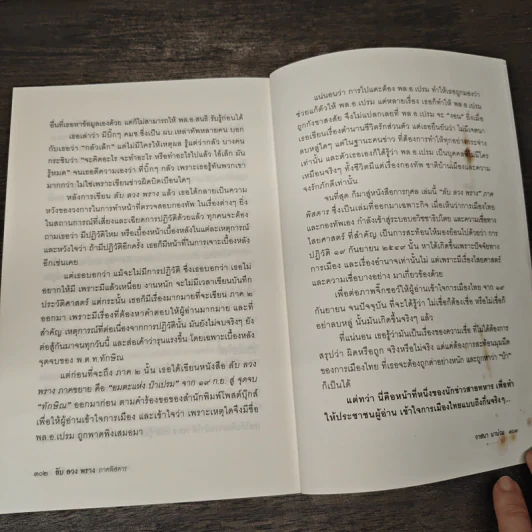 อื่นที่เธอหาข้อมูลเองด้วย แต่ก็ไม่สามารถให้ พล.อ.สนธิ รับรู้ก่อนได้
เธอเล่าว่า มีบิ๊กๆ คมช.ซึ่งเป็น ผบ.เหล่าทัพหลายคน บอก
กับเธอว่า "กลัวเด็ก" แต่ไม่มีใครให้เหตุผล รู้แค่ว่ากลัว บางคน
กระซิบว่า "จะคิดอะไร จะทำอะไร หรือทำอะไรไปแล้ว ไอ้เด็ก มัน
รู้หมด" จนเธอตีความเองว่า ที่บิ๊กๆ กลัว เพราะเธอรู้ทันพวกเขา
มากกว่า ไม่ใช่เพราะเขียนข่าวผิดบิดเบือนใดๆ
หลังการเขียน ลับ ลวง พราง แล้ว เธอได้กลายเป็นความ
หวังของวงการในการทำหน้าที่ตรวจสอบกองทัพ ในเรื่องต่างๆ ยิ่งใน
สถานการณ์ที่เสี่ยงและเฉียดการปฏิวัติด้วยแล้ว ทุกคนจะต้อง
ถามเธอว่า มีปฏิวัติไหม หรือเบื้องหน้าเบื้องหลังในแต่ละเหตุการณ์
และหวังใจว่า ถ้ามีปฏิวัติอีกครั้ง เธอก็มีหน้าที่ในการเจาะเบื้องหลัง
อีกเช่นเคย
แต่เธอบอกว่า แม้จะไม่มีการปฏิวัติ ซึ่งเธอบอกว่า เธอไม่
อยากให้มี เพราะมีแล้วเหนื่อย งานหนัก จะไม่มีเวลาเขียนบันทึก
ประวัติศาสตร์ แต่กระนั้น เธอก็มีเรื่องมากมายที่จะเขียน ภาค ๒
ออกมา เพราะมีเรื่องที่ต้องหาคำตอบให้ผู้อ่านมากมาย และที่
สำคัญ เหตุการณ์ที่ต่อเนื่องจากการปฏิวัตินั้น มันยังไม่จบจริงๆ ยัง
ต่อสู้กันมาจนทุกวันนี้ และส่อเค้าว่ารุนแรงขึ้น โดยเฉพาะเบื้องหลัง
จุดจบของ พ.ต.ท.ทักษิณ
แต่ก่อนที่จะถึง ภาค ๒ นั้น เธอได้เขียนหนังสือ ลับ ลวง
พราง ภาคขยาย คือ "อมตะแห่ง ป๋าเปรม" จาก ๑๙ ก.ย. สู่ จุดจบ
"ทักษิณ" ออกมาก่อน ตามคำร้องขอของสำนักพิมพ์โพสต์บุ๊กส์
เพื่อให้ผู้อ่านเข้าใจการเมือง และเข้าใจว่า เพราะเหตุใดจึงมีชื่อ
พล.อ.เปรม ถูกพาดพิงเสมอมา
๓๐๒ : ลับ ลวง พราง ภาคพิสดาร
แน่นอนว่า การไปแตะต้อง พล.อ.เปรม ทำให้เธอถูกมองว่า
ช่วยแก้ตัวให้ พล.อ.เปรม แต่หลายเรื่อง เธอก็ทำให้ พล.อ.เปรม
ถูกกังขาสงสัย จึงไม่แปลกเลยที่ พล.อ.เปรม จะ "งอน" ยิ่งเมื่อ
เธอเขียนเรื่องตำนานชีวิตรักส่วนตัว แต่เธอยืนยันว่า ไม่มีเจตนา
ลบหลู่ใดๆ แต่ในฐานะคนข่าว ที่ต้องการทำให้ทุกอย่างกระจ่าง
เท่านั้น และตัวเธอเองก็ได้รู้ว่า พล.อ.เปรม เป็นบุคคลที่ไม่มีใคร
เหมือนจริงๆ ทั้งชีวิตมีแต่เรื่องกองทัพ ชาติบ้านเมืองและความ
จงรักภักดีเท่านั้น
จนที่สุด ก็มาสู่หนังสือการกุศล เล่มนี้ "ลับ ลวง พราง" ภาค
พิสดาร ซึ่งเป็นเล่มที่ออกมาเฉพาะกิจ เมื่อเห็นว่าการเมืองไทย
และกองทัพเอง กำลังเข้าสู่ระบอบอธิชาธิปไตย และความเชื่อทาง
ไสยศาสตร์ ที่สำคัญ เป็นการสะท้อนให้มองย้อนไปด้วยว่า การ
ปฏิวัติ ๑๙ กันยายน ๒๕๔๙ นั้น หาได้เกิดขึ้นเพราะปัจจัยทาง
การเมือง และเรื่องอำนาจเท่านั้นไม่ แต่เพราะมีเรื่องไสยศาสตร์
และความเชื่อบางอย่าง มาเกี่ยวข้องด้วย
เพื่อต่อภาพจิ๊กซอว์ให้ผู้อ่านเข้าใจการเมืองไทย จาก ๑๙
กันยายน จนปัจจุบัน ที่จะได้รู้ว่า ไม่เชื่อก็ต้องเชื่อ หรือไม่เชื่อก็
อย่าลบหลู่ นั้นมันเกิดขึ้นจริงๆ แล้ว
ที่แน่นอน เธอรู้ว่ามันเป็นเรื่องของความเชื่อ ที่ไม่ได้ต้องการ
สรุปว่า ผิดหรือถูก จริงหรือไม่จริง แต่แค่ต้องการสะท้อนมุมมืด
ของการเมืองไทย ที่เธอจะต้องถูกด่าอย่างหนัก และถูกหาว่า "บ้า"
ก็เป็นได้
แต่ทว่า นี่คือหน้าที่หนึ่งของนักข่าวสายทหาร เพื่อทำ
ให้ประชาชนผู้อ่าน เข้าใจการเมืองไทยแบบลึกตื้นจริงๆ...
วาสนา นาน่วม ๓๐๓